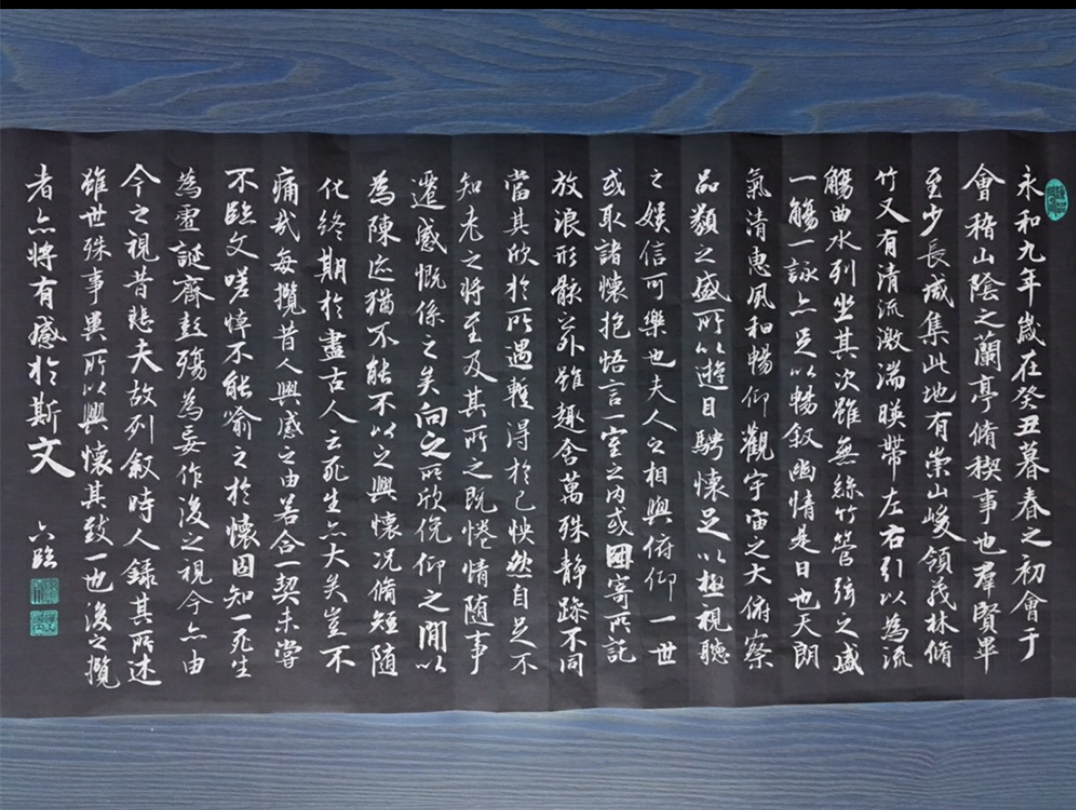 永和九年歲在癸丑暮春之初會于
會稽山陰之蘭亭脩稧事也羣賢畢
至少長咸集此地有崇山峻領茂林脩
竹又有清流激湍暎帶左右引以為流
觴曲水列坐其次雖無絲竹管弦之盛
一觴一詠亦足以暢叙幽情是日也天朗
氣清惠風和暢仰觀宇宙之大俯察
品類之盛所以遊目騁懷足以極視聽
之娛信可樂也夫人之相與俯仰一世
或取諸懷抱悟言一室之內或因寄所託
放浪形骸之外雖趣舍萬殊靜躁不同
當其欣於所遇暫得於己怏然自足不
知老之將至及其所之既惓情隨事
遷感慨係之矣向之所欣俛仰之間以
為陳迹猶不能不以之興懷況脩短隨
化終期於盡古人云死生亦大矣豈不
痛哉每攬昔人興感之由若合一契未嘗
不臨文嗟悼不能喻之於懷固知一死生
為虛誕齊彭殤為妄作後之視今亦由
今之視昔悲夫故列叙時人錄其所述
雖世殊事異所以興懷其致一也後之攬
者亦將有感於斯文